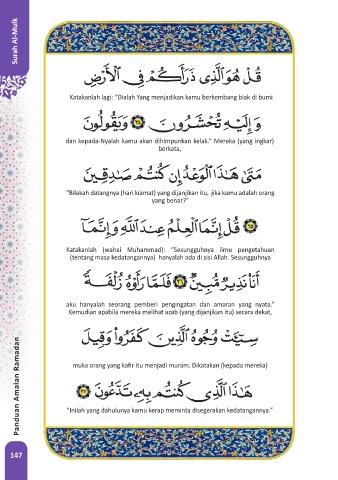 Surah Al-Mulk
قُلْ هُوَ ٱلَّذِى ذَرَأَكُمْ فِى ٱلْأَرْضِ
Katakanlah lagi: “Dialah Yang menjadikan kamu berkembang biak di bumi
وَإِلَيْهِ تُحْشَرُونَ ٢٤ وَيَقُولُونَ
dan kepada-Nyalah kamu akan dihimpunkan kelak.” Mereka (yang ingkar)
berkata,
مَتَىٰ هَٰذَا ٱلْوَعْدُ إِن كُنتُمْ صَٰدِقِينَ
“Bilakah datangnya (hari kiamat) yang dijanjikan itu, jika kamu adalah orang
yang benar?”
٢٥ قُلْ إِنَّمَا ٱلْعِلْمُ عِندَ ٱللَّهِ وَإِنَّمَآ
Katakanlah (wahai Muhammad): “Sesungguhnya ilmu pengetahuan
(tentang masa kedatangannya) hanyalah ada di sisi Allah. Sesungguhnya
أَنَا۠ نَذِيرٌ مُّبِينٌ ٢٦ فَلَمَّا رَأَوْهُ زُلْفَةً
aku hanyalah seorang pemberi pengingatan dan amaran yang nyata.”
Kemudian apabila mereka melihat azab (yang dijanjikan itu) secara dekat,
سِيٓـَٔتْ وُجُوهُ ٱلَّذِينَ كَفَرُوا۟ وَقِيلَ
muka orang yang kafir itu menjadi muram. Dikatakan (kepada mereka)
هَٰذَا ٱلَّذِى كُنتُم بِهِۦ تَدَّعُونَ ٢٧
“Inilah yang dahulunya kamu kerap meminta disegerakan kedatangannya.”
Panduan Amalan Ramadan
147